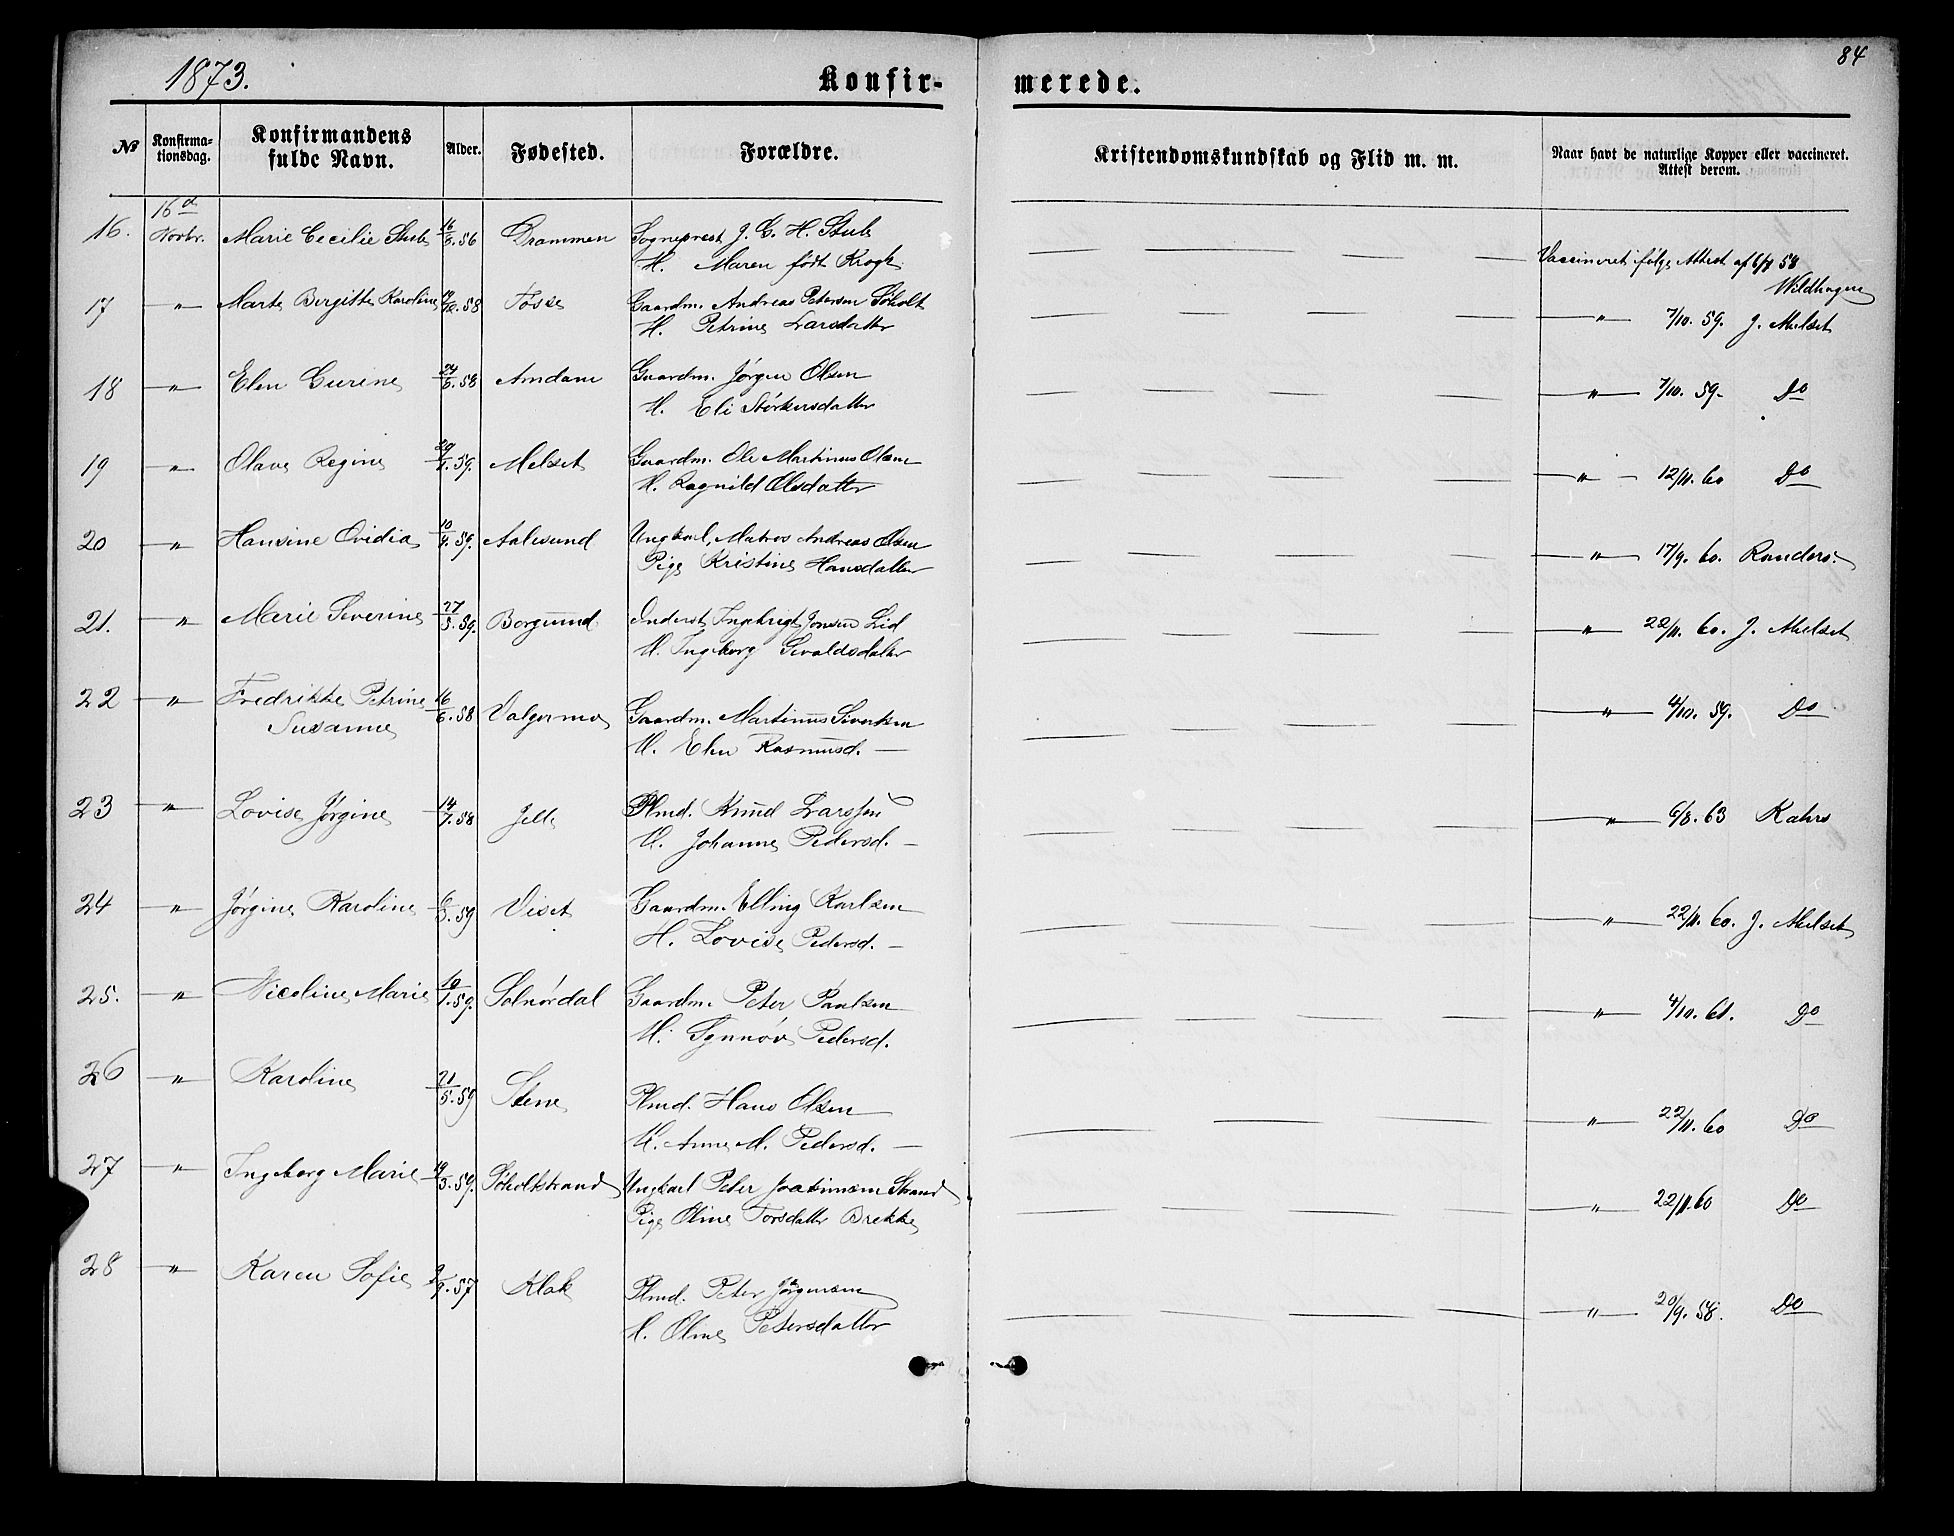 84
1873.
Konfir-
merede.
No
Konfirma-
tionsdag.
Konfirmandens
fulde Navn.
Alder.
Fødested.
Forældre.
Kristendomskundskab og Flid m. m.
Naar havt de naturlige Kopper eller vaccineret.
Attest derom.
16. 16d Novbr. Marie Cecilie Stub 16/6.56 Drammen Sogneprest J. G. H. Stub
H. Maren født Krogh
Vaccineret ifølge Attest af 6/8 58
Wildhagen
17 " Marte Bergitte Karoline 58 Fosse Gaardm. Andreas Petersen Søholt
H. Petrine Larsdatter
" 7/10. 59. J. Melset
18 " Elen Gurine 24/6.58 Amdam Gaardm. Jørgen Olsen
H. Eli Størkersdatter
" 7/10. 59- Do
19 " Olave Regine 59. Melset Gaardm. Ole Martinus Olsen
H. Ragnild Olsdatter
" 12/11. 60 Do
20 " Hansine Ovidia 10/4.59. Aalesund Ungkarl, Matros Andreas Olsen
Pige Kristine Hansdatter
" 17/9. 60. Randers.
21. " Marie Severine 27/5.59. Borgund Inderst Ingebrigt Jonsen Lid
H. Ingeborg Sivaldsdatter
" 22/11. 60. J. Melset
22 " Fredrikke Petrine
Susanne
16/6.58 Valgermo Gaardm. Martinus Sivertsen
H. Elen Rasmusd.
" 4/10. 59. Do
23 " Lovise Jørgine 14/7.58 Jelle Plmd. Knud Larssen
H. Johanne Pedersd.
" 6/8. 63 Kahrs
24 " Jørgine Karoline 6/3.59 Viset Gaardm. Elling Karlsen
H. Lovise Pedersd.
" 22/11. 60. J. Melset
25. " Nicoline Marie 19/1.59. Solnørdal Gaardm. Peter Paulsen
H. Synnøv Pedersd.
" 4/10. 61. Do
26 " Karoline 21/5.59 Stene Plmd. Hans Olsen
H. Anne M. Pedersd.
" 22/11. 60 Do
27 " Ingeborg Marie 19/3.59. Søholtstrand Ungkarl Peter Joakimsen Strand
Pige Oline Torsdatter Brekke
" 22/11.60 Do
28 " Karen Sofie 9.57 Klok Plmd. Peter Jørgensen
H. Oline Petersdatter
" 20/9. 58. Do